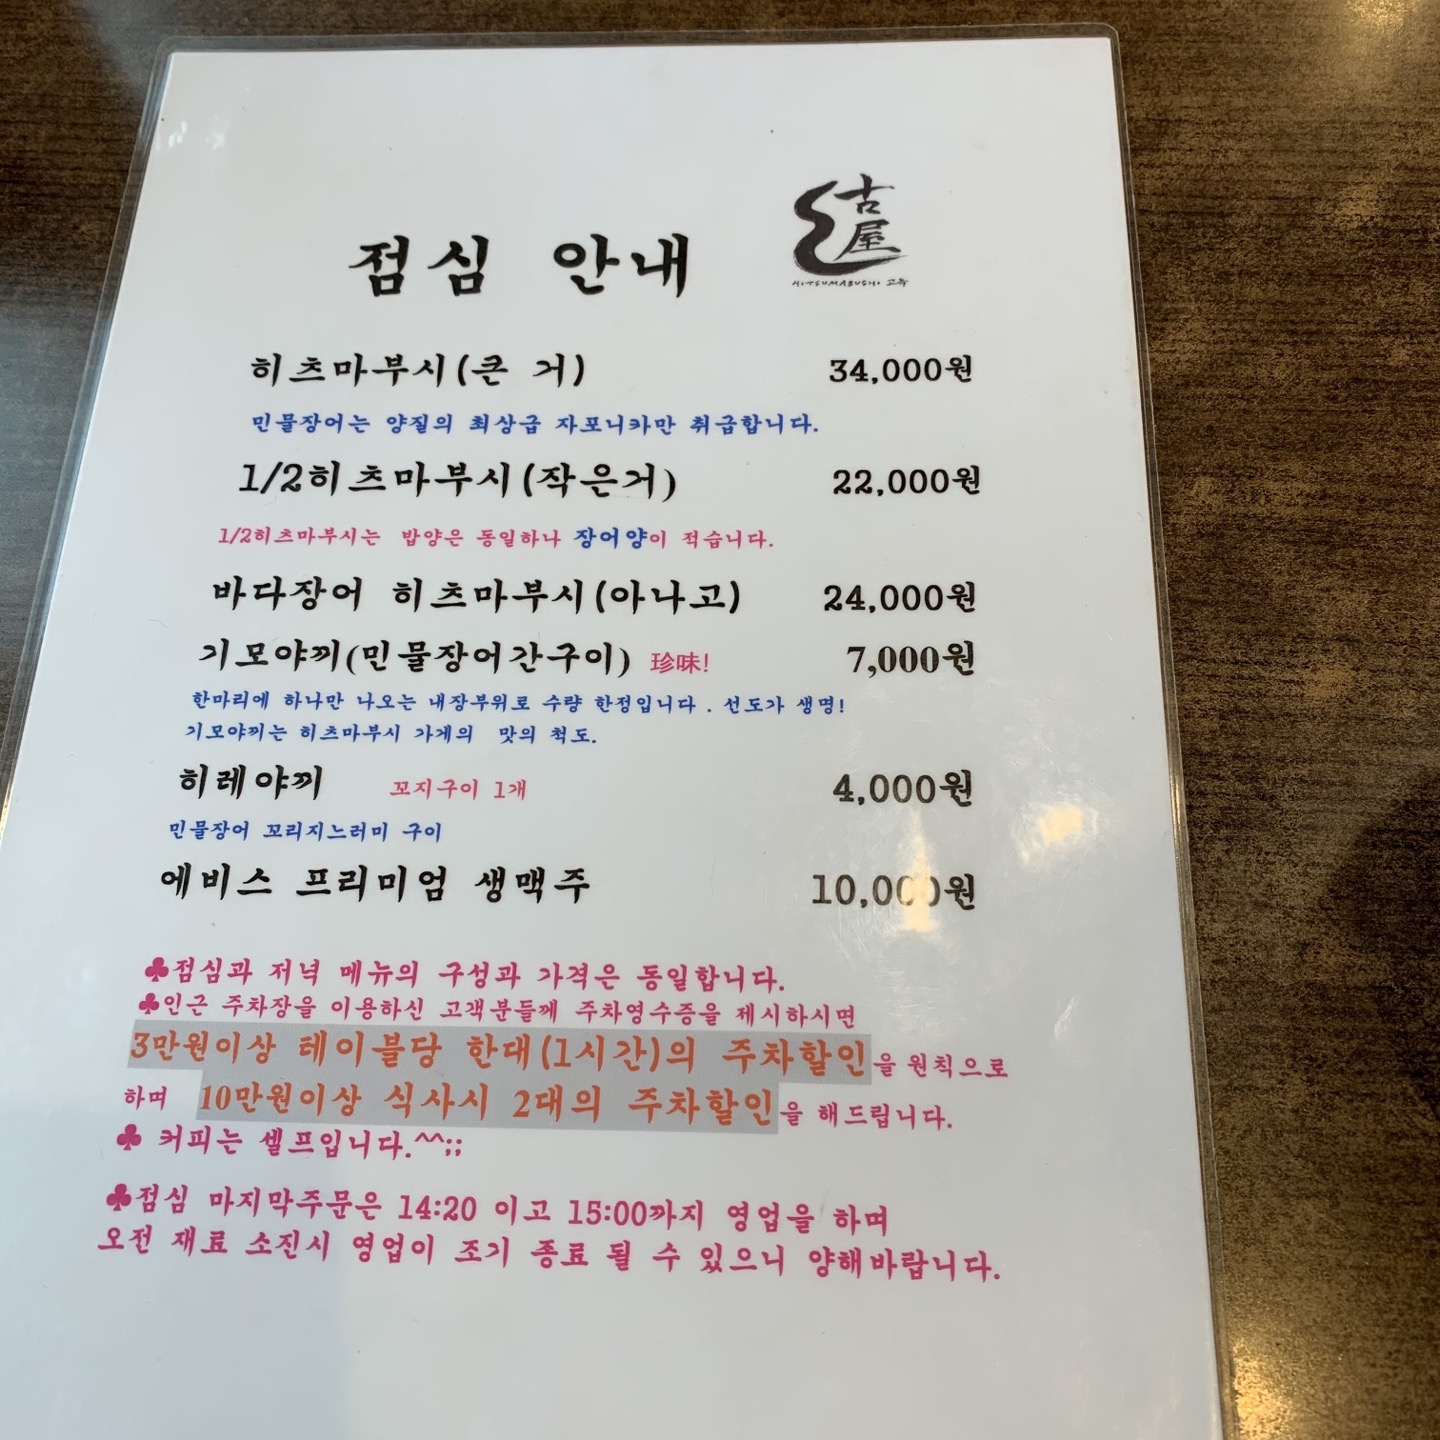 점심 안내
古屋
HITSUMABUSHI 고옥
히츠마부시(큰 거) 34,000원
민물장어는 양질의 최상급 자포니카만 취급합니다.
1/2히츠마부시(작은거) 22,000원
1/2히츠마부시는 밥양은 동일하나 장어양이 적습니다.
바다장어 히츠마부시(아나고) 24,000원
기모야끼(민물장어간구이) 珍味! 7,000원
한마리에 하나만 나오는 내장부위로 수량 한정입니다. 선도가 생명!
기모야끼는 히츠마부시 가게의 맛의 척도.
히레야끼 꼬지구이 1개 4,000원
민물장어 꼬리지느러미 구이
에비스 프리미엄 생맥주 10,000원
♣점심과 저녁 메뉴의 구성과 가격은 동일합니다.
♣인근 주차장을 이용하신 고객분들께 주차영수증을 제시하시면
3만원이상 테이블당 한대(1시간)의 주차할인을 원칙으로
하며 10만원이상 식사시 2대의 주차할인을 해드립니다.
♣ 커피는 셀프입니다.^^;;
♣점심 마지막주문은 14:20 이고 15:00까지 영업을 하며
오전 재료 소진시 영업이 조기 종료 될 수 있으니 양해바랍니다.